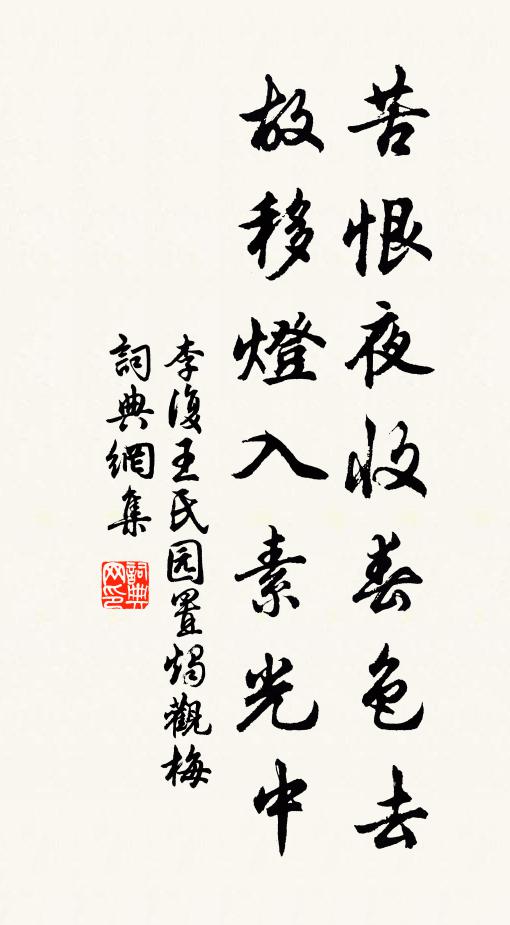 苦恨夜收春色去
故移燈入素光中
李復王氏园置燭觀梅
詞典網集
詞典网印